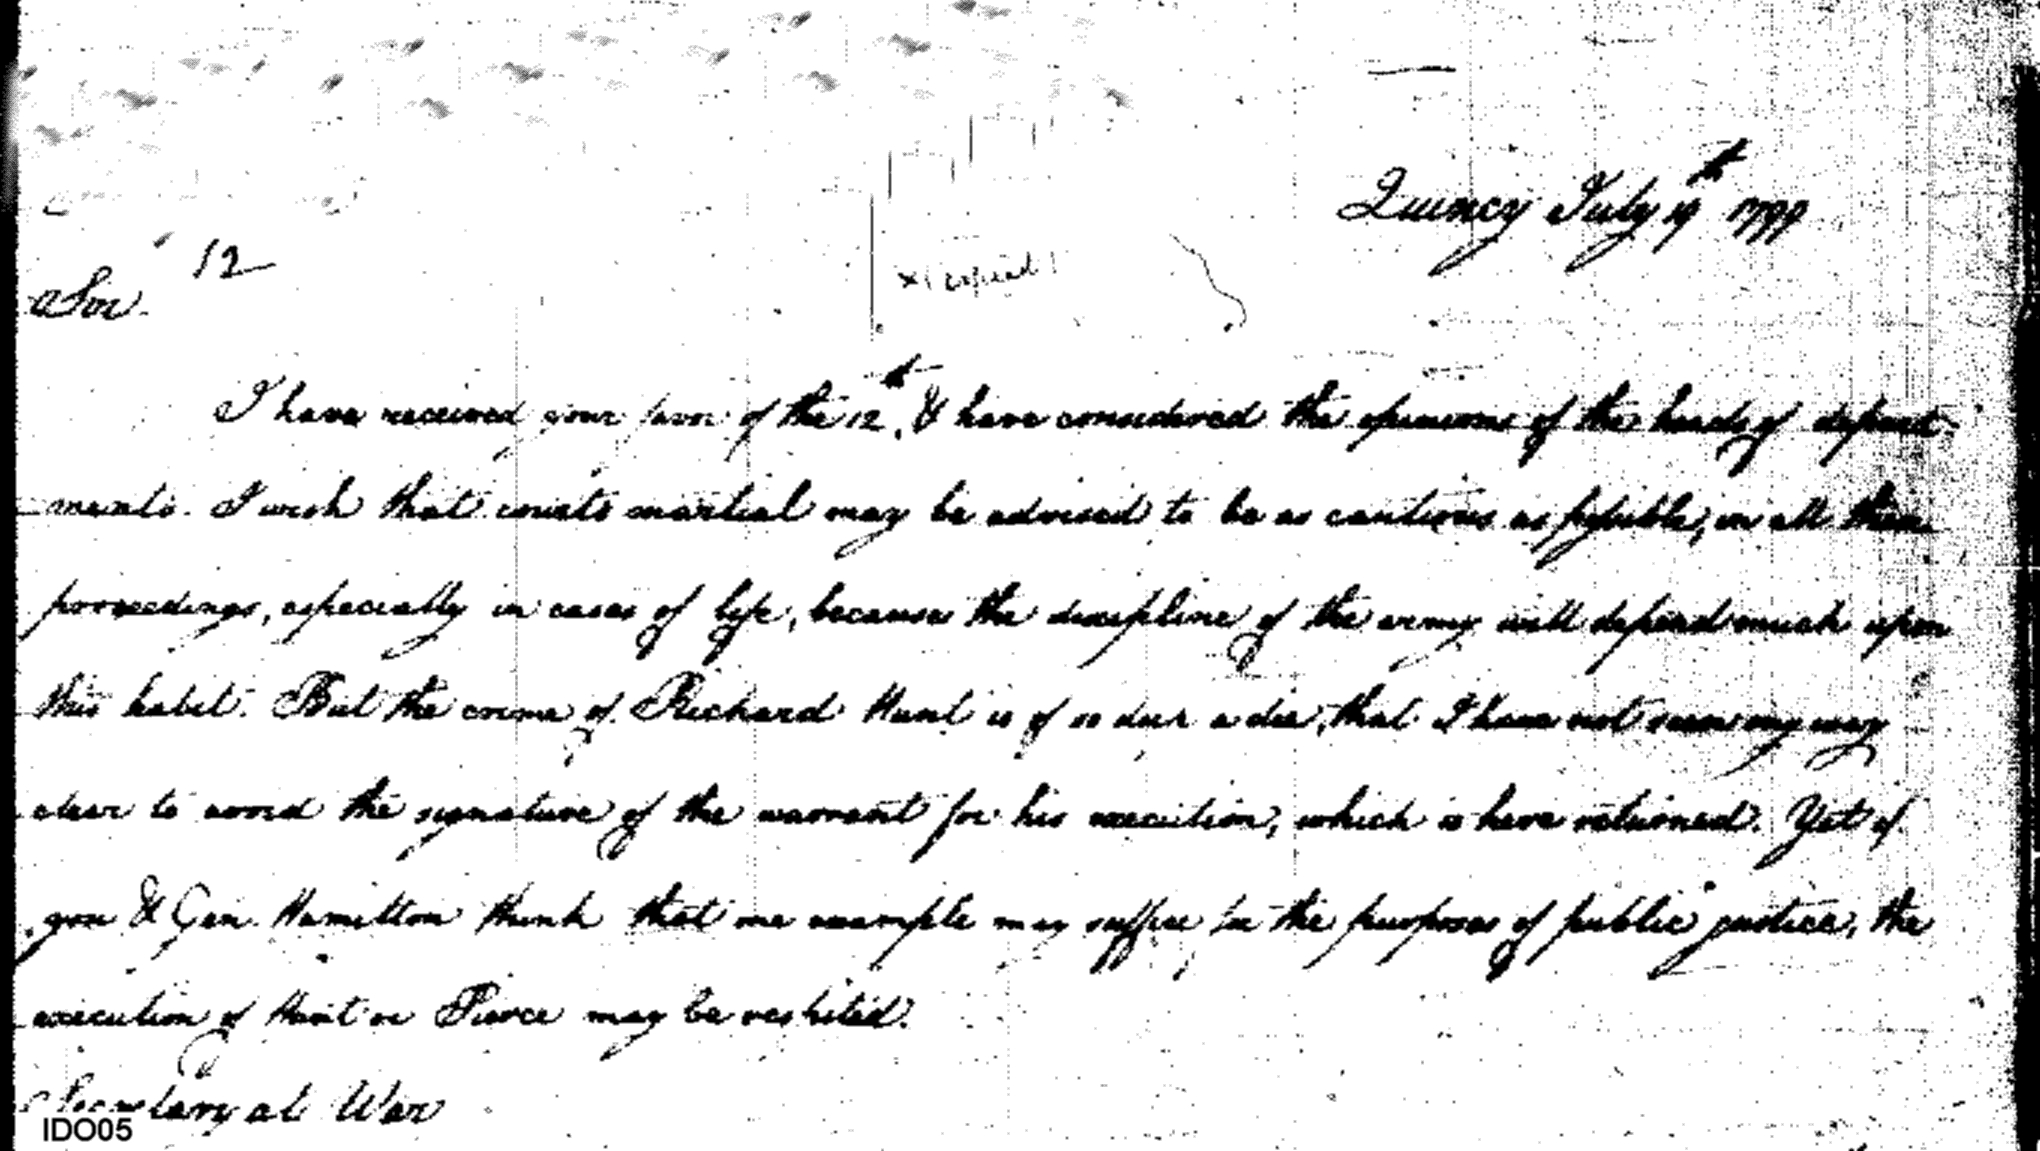 Quincy July 19th 1799
12
Sir.
x copied
I have received your favor of the 12th, & have considered the opinions of the heads of depart-
ments. I wish that courts martial may be advised to be as cautious as possible, in all their
proceedings, especially in cases of life, because the discipline of the army will depend much upon
this habit. But the crime of Richard Hunt is of so deep a die, that I have not seen my way
clear to avoid the signature of the warrant for his execution, which is here returned. Yet if
you & Gen. Hamilton think that one example may suffice for the purposes of public justice, the
execution of Hunt or Pierce may be respited.
Secretary at War
IDO05